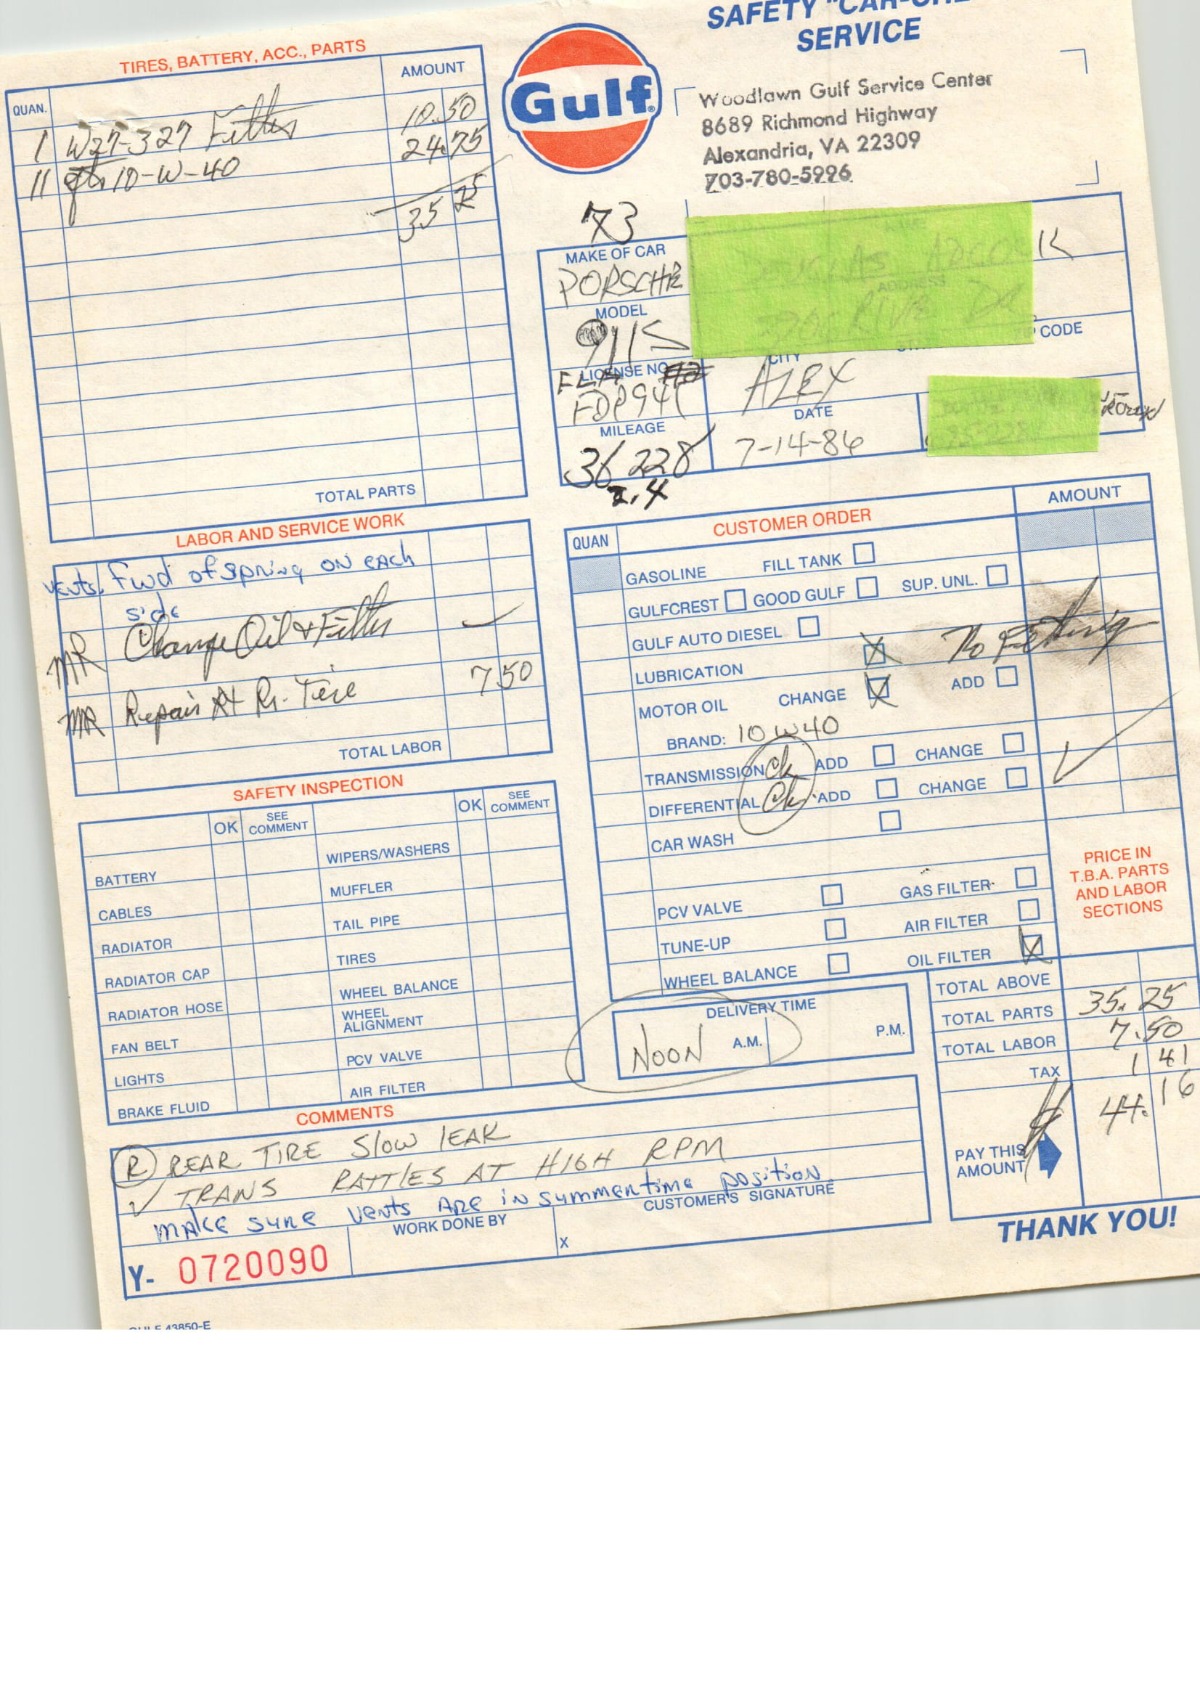 SAFETY "CAR-CHE
SERVICE
Gulf
Woodlawn Gulf Service Center
8689 Richmond Highway
Alexandria, VA 22309
703-780-5226
TIRES, BATTERY, ACC., PARTS
QUAN. AMOUNT
1 W27-327 Filter 10.50
11 qts 10-W-40 24.75
35 25
TOTAL PARTS
73
MAKE OF CAR
PORSCHE
MODEL
911S
LICENSE NO.
FLA
MILEAGE
36 228
2.4
NAME
ADDRESS
CITY CODE
ALEX
DATE
7-14-86
LABOR AND SERVICE WORK
vents. Fwd of spring on each
side
MR Change Oil & Filter
MR Repair Rt Rr. Tire 7 50
TOTAL LABOR
QUAN CUSTOMER ORDER AMOUNT
GASOLINE FILL TANK
GULFCREST GOOD GULF SUP. UNL.
GULF AUTO DIESEL
LUBRICATION X No Fitting
MOTOR OIL CHANGE X ADD
BRAND: 10W40
TRANSMISSION Ck ADD CHANGE
DIFFERENTIAL Ck ADD CHANGE ✓
CAR WASH
PCV VALVE GAS FILTER
TUNE-UP AIR FILTER
WHEEL BALANCE OIL FILTER X
PRICE IN
T.B.A. PARTS
AND LABOR
SECTIONS
SAFETY INSPECTION
OK SEE COMMENT OK SEE COMMENT
BATTERY WIPERS/WASHERS
CABLES MUFFLER
RADIATOR TAIL PIPE
RADIATOR CAP TIRES
RADIATOR HOSE WHEEL BALANCE
FAN BELT WHEEL ALIGNMENT
LIGHTS PCV VALVE
BRAKE FLUID AIR FILTER
DELIVERY TIME
NOON A.M. P.M.
TOTAL ABOVE
TOTAL PARTS 35.25
TOTAL LABOR 7.50
TAX 1 41
PAY THIS
AMOUNT 44.16
COMMENTS
(R) REAR TIRE SLOW LEAK
✓ TRANS RATTLES AT HIGH RPM
make sure vents are in summertime position
WORK DONE BY CUSTOMER'S SIGNATURE
X
Y- 0720090
THANK YOU!
GULF 43850-E